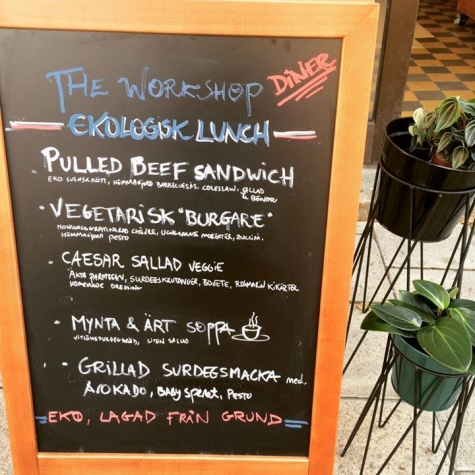 THE WORKSHOP
DINER
EKOLOGISK LUNCH
PULLED BEEF SANDWICH
EKO SVENSK KÖTT, HEMMAGJORD BARBECUESÅS, COLESLAW, SALLAD
& BÖNOR
- VEGETARISK "BURGARE"
CHÈVRE, UGNSBAKADE MORÖTTER, ZUCCINI,
HEMMAGJORT PESTO
- CAESAR SALLAD VEGGIE
ÄKTA PARMESAN, SURDEGSKRUTONGER, BOVETE, ROSMARIN KIKÄRTER
HOMEMADE DRESSING
- MYNTA & ÄRT SOPPA
VITLÖKSSURDEGSBRÖD, LITEN SALLAD
- GRILLAD SURDEGSMACKA med
AVOKADO, BABY SPENAT, PESTO
EKO, LAGAD FRÅN GRUND